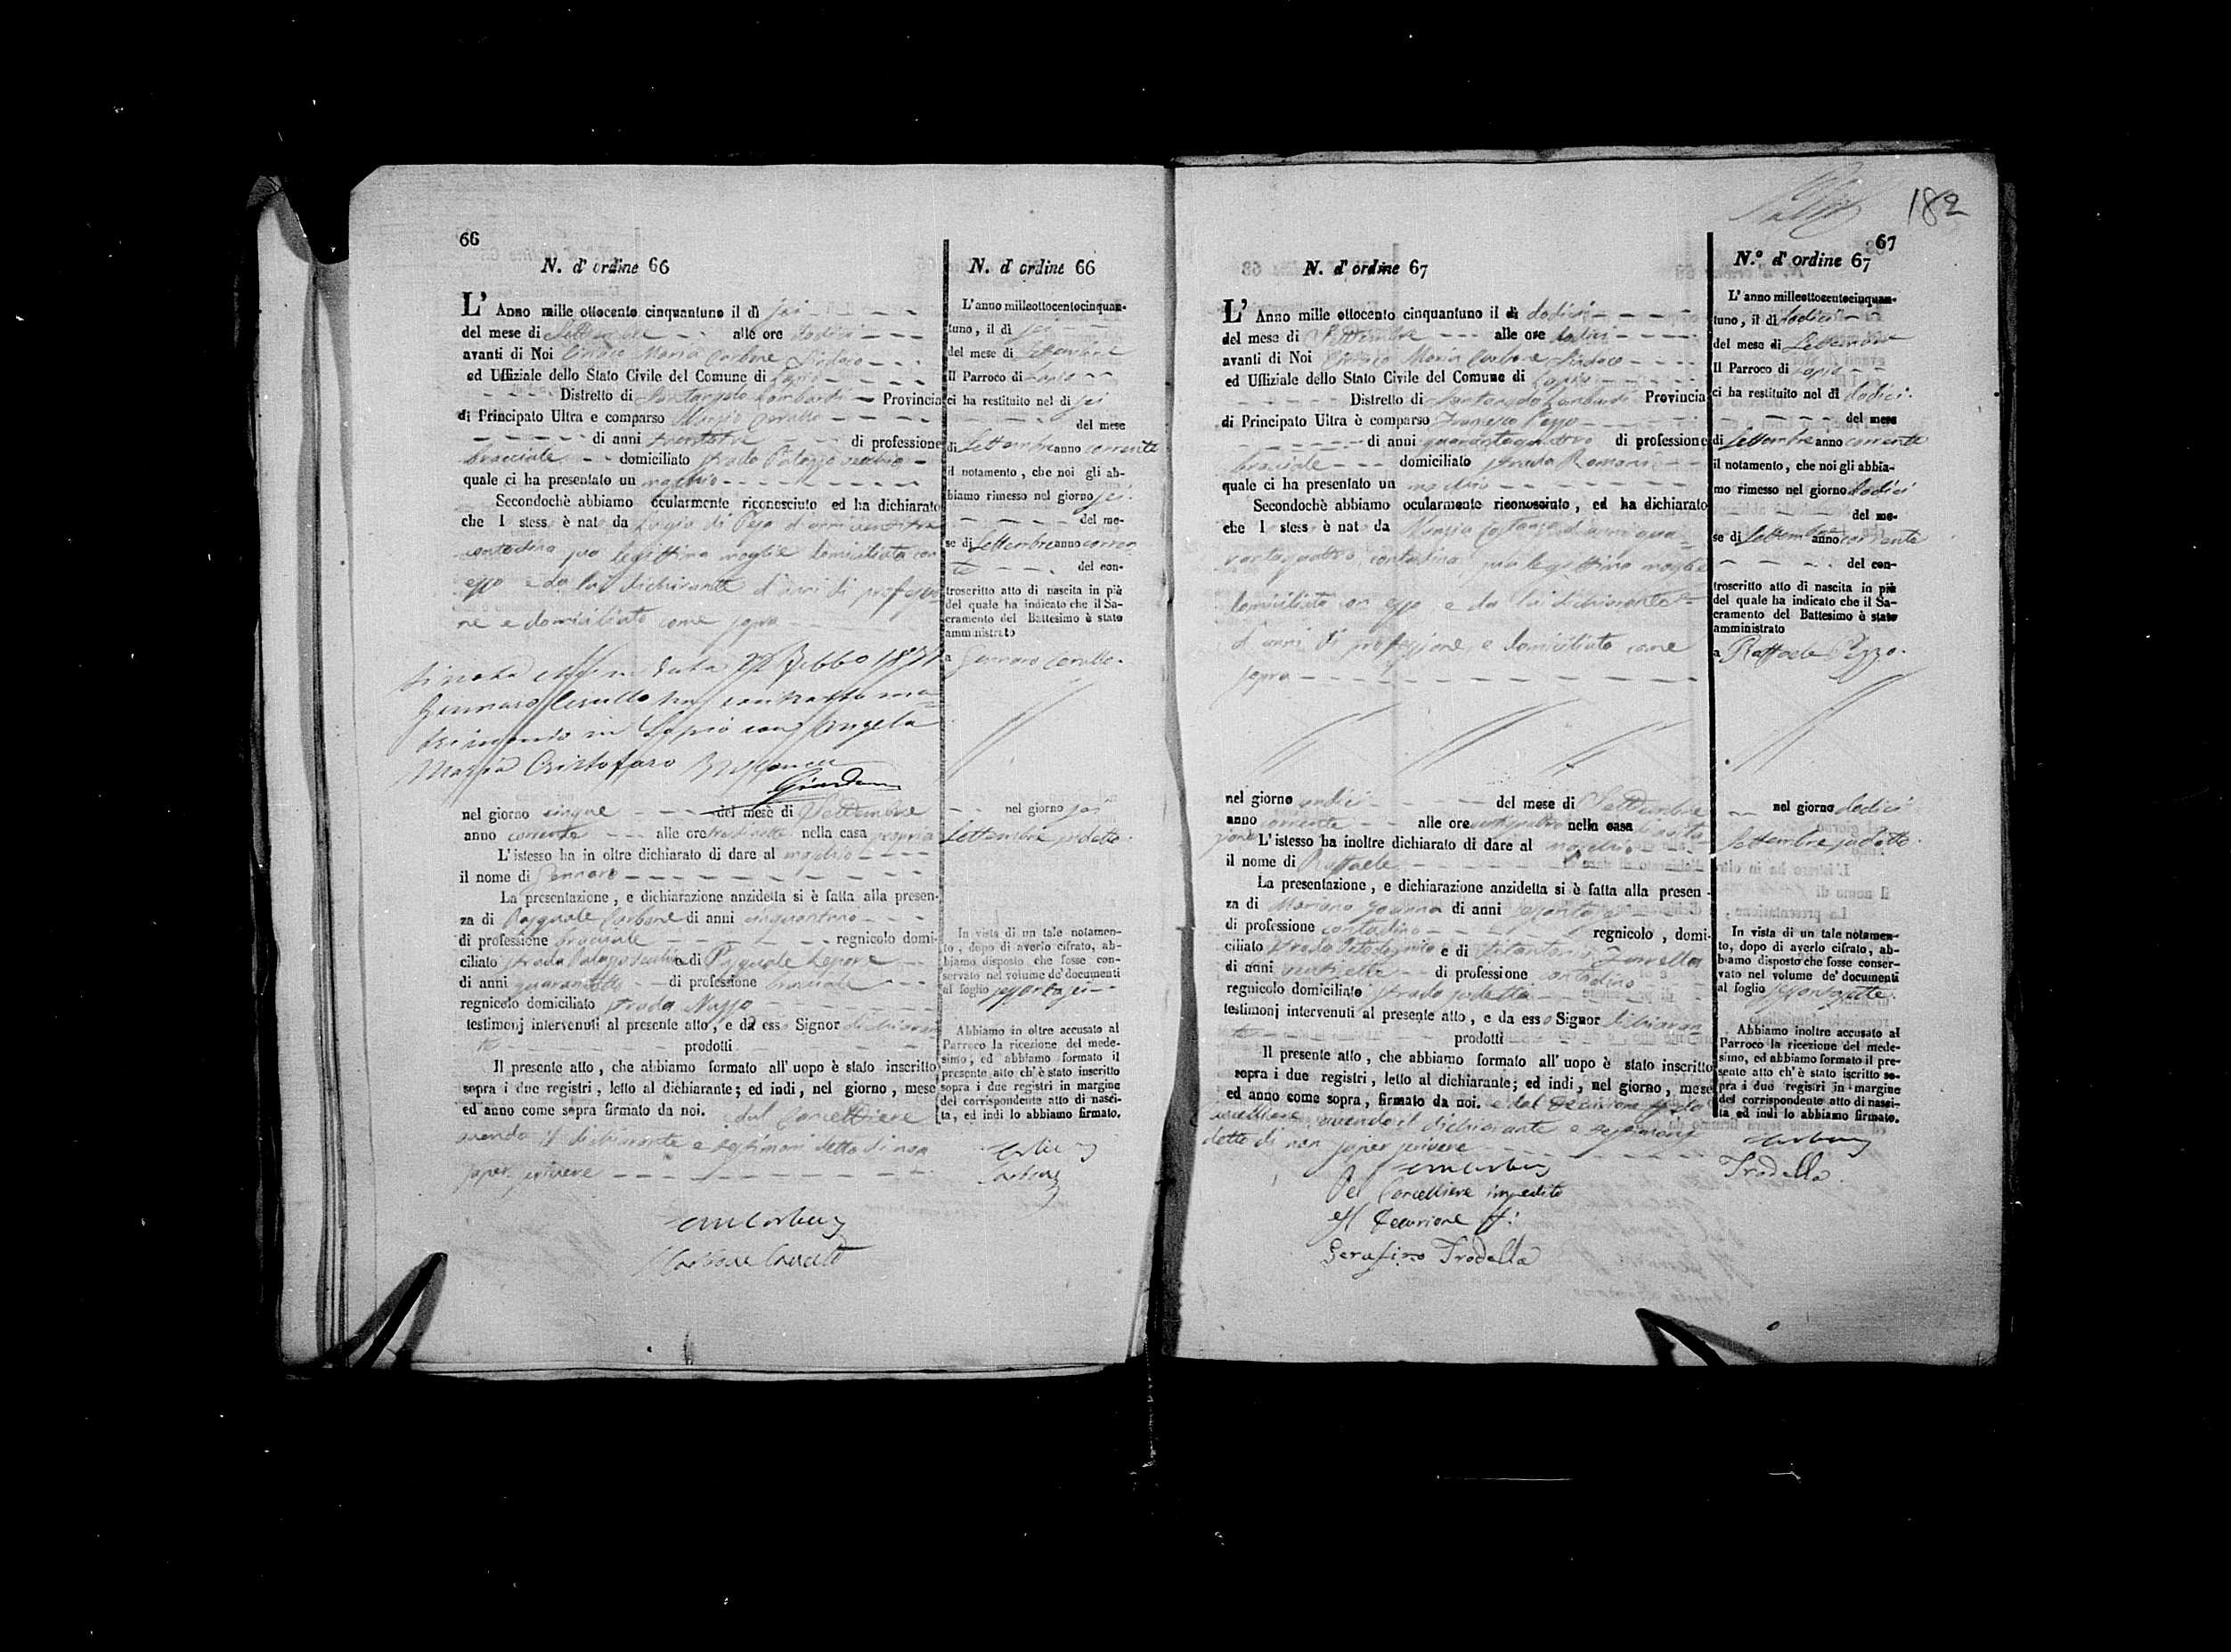 66
N. d' ordine 66
L' Anno mille ottocento cinquantuno il dì sei
del mese di Settembre alle ore dodici
avanti di Noi Ciriaco Maria Carbone Sindaco
ed Uffiziale dello Stato Civile del Comune di Lapio
Distretto di Santangelo Lombardi Provincia
di Principato Ultra e comparso
di anni trentatre di professione
bracciale domiciliato strada Palazzo vecchio
quale ci ha presentato un maschio
Secondochè abbiamo ocularmente riconosciuto ed ha dichiarato
che l stess è nat da di anni ventitre
contadina sua legittima moglie domiciliata con
esso e da lui dichiarante d'anni di professio
ne e domiciliato come sopra
Si nota che in data 22 Febb° 18
Gennaro Cerullo ha contratto ma
trimonio in Lapio con Angela
Maria Cristofaro
nel giorno cinque del mese di Settembre
anno corrente alle ore nella casa propria
L' istesso ha in oltre dichiarato di dare al maschio
il nome di Gennaro
La presentazione, e dichiarazione anzidetta si è fatta alla presen-
za di Pasquale Carbone di anni
di professione bracciale regnicolo domi-
ciliato strada Palazzo Vecchio e di Pasquale Lepore
di anni di professione bracciale
regnicolo domiciliato strada
testimonj intervenuti al presente atto, e da esso Signor dichiaran
te prodotti
Il presente atto, che abbiamo formato all' uopo è stato inscritto
sopra i due registri, letto al dichiarante; ed indi, nel giorno, mese
ed anno come sopra firmato da noi. e dal Cancelliere
avendo il dichiarante e testimoni detto di non
saper scrivere
N. d' ordine 66
L' anno milleottocentocinquan-
tuno, il dì sei
del mese di Settembre
Il Parroco di Lapio
ci ha restituito nel dì sei
del mese
di Settembre anno corrente
il notamento, che noi gli ab-
biamo rimesso nel giorno sei
del me-
se di Settembre anno corren
te del con-
troscritto atto di nascita in più
del quale ha indicato che il Sa-
cramento del Battesimo è stato
amministrato
a Gennaro Cerullo.
nel giorno sei
Settembre sudetto.
In vista di un tale notamen-
to, dopo di averlo cifrato, ab-
biamo disposto che fosse con-
servato nel volume de' documenti
al foglio sessantasei
Abbiamo in oltre accusato al
Parroco la ricezione del mede-
simo, ed abbiamo formato il
presente atto ch' è stato inscritto
sopra i due registri in margine
del corrispondente atto di nasci-
ta, ed indi lo abbiamo firmato.
182
67
N. d' ordine 67
L' Anno mille ottocento cinquantuno il dì dodici
del mese di Settembre alle ore dodici
avanti di Noi Ciriaco Maria Carbone Sindaco
ed Uffiziale dello Stato Civile del Comune di Lapio
Distretto di Santangelo Lombardi Provincia
di Principato Ultra è comparso Francesco Pezzo
di anni quarantaquattro di professione
bracciale domiciliato strada Romani
quale ci ha presentato un maschio
Secondochè abbiamo ocularmente riconosciuto, ed ha dichiarato
che l stess è nat da Nunzia Costanzo d'anni qua-
rantaquattro contadina sua legittima moglie
domiciliata con esso e da lui dichiarante
d'anni di professione e domiciliato come
sopra
nel giorno undici del mese di Settembre
anno corrente alle ore ventiquattro nella casa
L' istesso ha inoltre dichiarato di dare al maschio
il nome di Raffaele
La presentazione, e dichiarazione anzidetta si è fatta alla presen-
za di Mariano di anni sessanta
di professione contadino regnicolo, domi-
ciliato strada e di
di anni ventisette di professione contadino
regnicolo domiciliato strada sudetta
testimonj intervenuti al presente atto, e da esso Signor dichiaran-
te prodotti
Il presente atto, che abbiamo formato all' uopo è stato inscritto
sopra i due registri, letto al dichiarante; ed indi, nel giorno, mese
ed anno come sopra, firmato da noi. e dal Decurione ff da
cancelliere avendo il dichiarante e testimoni
detto di non saper scrivere
Pel Cancelliere impedito
Il Decurione ff:
Serafino Trodella
N.° d' ordine 67
L' anno milleottocentocinquan-
tuno, il dì dodici
del mese di Settembre
Il Parroco di Lapio
ci ha restituito nel dì dodici.
del mese
di Settembre anno corrente
il notamento, che noi gli abbia-
mo rimesso nel giorno dodici
del me-
se di Settembre anno corrente
del con-
troscritto atto di nascita in più
del quale ha indicato che il Sa-
cramento del Battesimo è stato
amministrato
a Raffaele Pezzo.
nel giorno dodici
Settembre sudetto.
In vista di un tale notamen-
to, dopo di averlo cifrato, ab-
biamo disposto che fosse conser-
vato nel volume de' documenti
al foglio sessantasette.
Abbiamo inoltre accusato al
Parroco la ricezione del mede-
simo, ed abbiamo formato il pre-
sente atto ch' è stato iscritto so-
pra i due registri in margine
del corrispondente atto di nasci-
ta ed indi lo abbiamo firmato.
Trodella